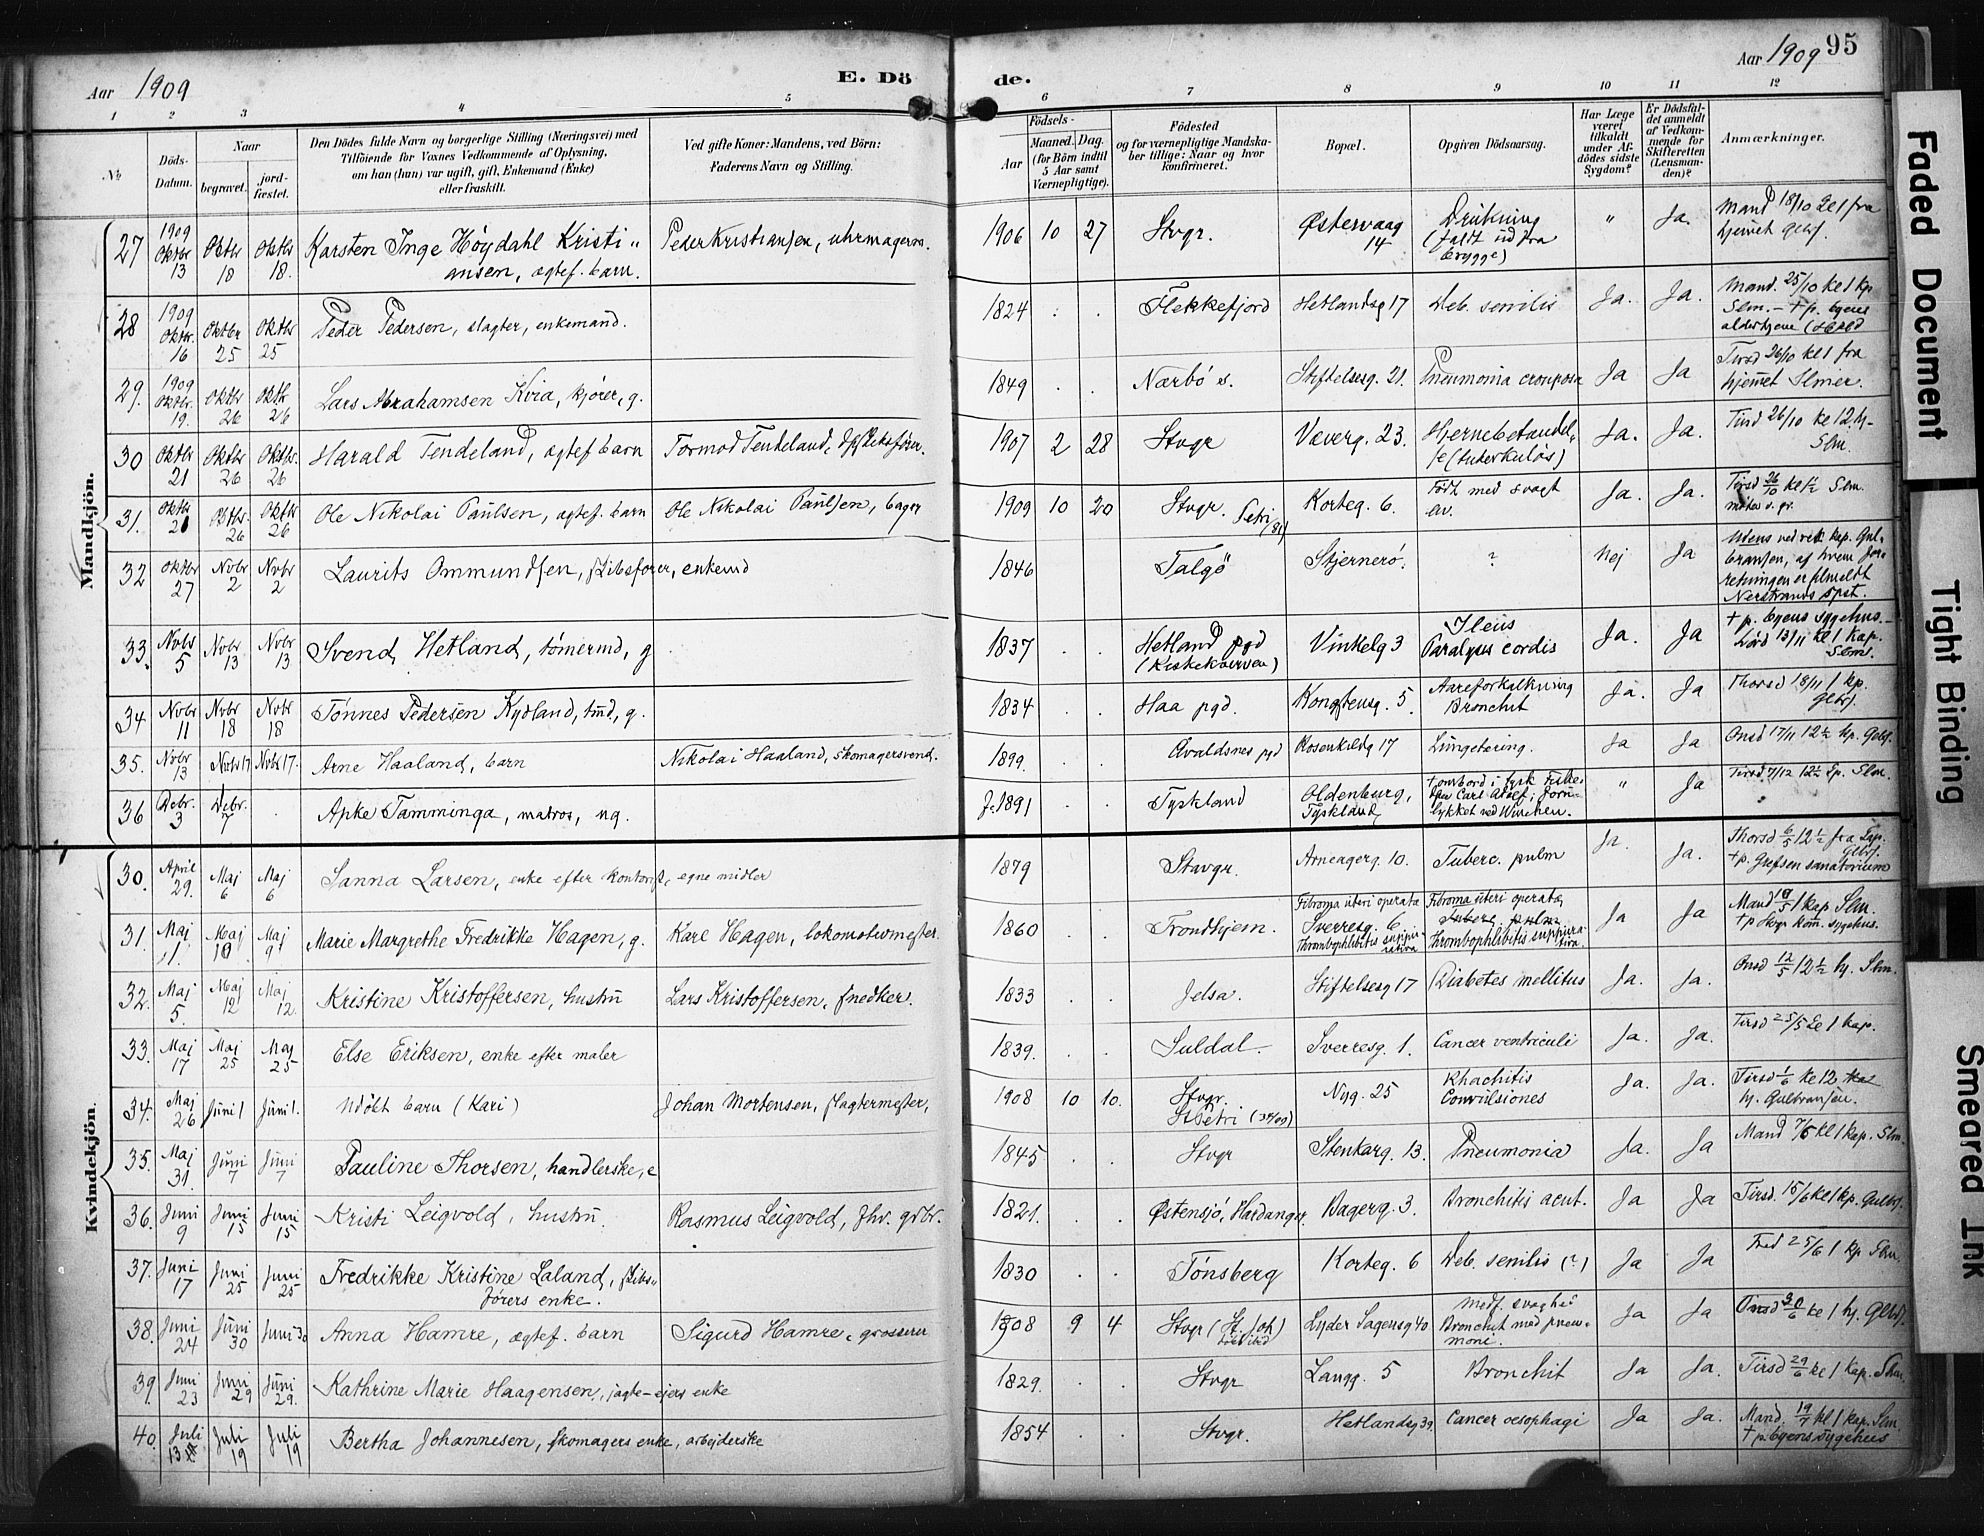 Aar 1909
E. Døde.
Aar 1909 95
1 2 3 4 5 6 7 8 9 10 11 12
№
Døds-Datum.
Naar
begravet.
jord-fæstet.
Den Dødes fulde Navn og borgerlige Stilling (Næringsvei) med
Tilföiende for Voxnes Vedkommende af Oplysning,
om han (hun) var ugift, gift, Enkemand (Enke)
eller fraskilt.
Ved gifte Koner: Mandens, ved Börn:
Faderens Navn og Stilling.
Födsels-
Aar
Maaned. Dag.
(for Börn indtil
5 Aar samt
Værnepligtige).
Födested
og for værnepligtige Mandska-
ber tillige: Naar og hvor
konfirmeret.
Bopæl.
Opgiven Dödsaarsag.
Har Læge
været
tilkaldt
under Af-
dödes sidste
Sygdom?
Er Dödsfal-
det anmeldt
af Vedkom-
mende for
Skifteretten
(Lensman-
den)?
Anmærkninger.
Mandkjön.
27 1909 Oktbr 13 Oktbr 18 Oktbr 18. Karsten Inge Høydahl Kristi-
ansen, ægtef. barn. Peder Kristiansen, uhrmagerm. 1906 10 27 Stvgr. Østervaag 14 Drukning
(faldt ud fra
brygge) " Ja. Mand 18/10 kl 1 fra
hjemmet Glbsj.
28 1909 Oktbr. 16 Oktbr 25 Oktbr 25 Peder Pedersen, slagter, enkemand. 1824 . . Flekkefjord Hetlandsg 17 Deb. senilis Ja. Ja. Mand. 25/10 kl 1 kp
Slm. - + p. byens
alderhjem
29. 1909 Oktbr. 19. Oktbr 26 Oktbr 26 Lars Abrahamsen Kvia, kjører, g. 1849 . . Nærbø s. Stiftelsesg. 21. Pneumonia crouposa Ja Ja Tirsd 26/10 kl 1 fra
hjemmet Slmer.
30 Oktbr 21 Oktbr 26 Oktbr. 26 Harald Tendeland, ægtef barn Tormod Tendeland, skibsfører. 1907 2 28 Stvgr Væverg. 23. Hjernebetændel-
se (tuberkuløs) Ja. Ja. Tirsd 26/10 kl 12 hj-
Slm.
31. Oktbr 21 Oktbr. 26 Oktbr 26 Ole Nikolai Paulsen, ægtef. barn Ole Nikolai Paulsen, bager 1909 10 20 Stvgr. Petri (81) Korteg. 6. Født med svagt
liv. Ja. Ja. Tirsd 26/10 kl 1½ Slm.
møter v. gr.
32 Oktbr 27 Novbr 2 Novbr 2 Laurits Ommundsen, skibsfører, enkemd 1846 Talgö Stjernerö. ? Nej Ja Udens ved res. kap. Gul-
bransen, af hvem for-
retningen er tilmeldt
Nerstrands spst.
33. Novbr 5 Novbr 13 Novbr 13 Svend Hetland, tømermd, g 1837 . . Hetland pgd
(Kiskekverven) Vinkelg 3 Ileus
Paralysis cordis Ja. Ja + p. byens sygehus.
Lørd 13/11 kl 1 kap.
Slm.
34 Novbr 11 Novbr 18 Novbr 18 Tønnes Pedersen Kydland, tmd, g. 1834 . . Haa pgd. Kongstensg. 5. Aareforkalkning
Bronchit Ja. Ja Thorsd 18/11 1 kp.
Glbsj.
35. Novbr 13 Novbr 17 Novbr 17. Arne Haaland, barn Nikolai Haaland, skomagersvend. 1899. . . Avaldsnes pgd Rosenkildg 17 Lungetæring. Ja Ja Onsd 17/11 12½ kp. Glbsj.
36 Debr. 3 Debr. 7 . Apke Tamminga, matros, ug. 1891 . . Tyskland Oldenburg,
Tyskland, + ombord i tysk fiske-
Carl Adolf; forn-
lykket ved " Ja Tirsd 7/12 12½ kp. Slm.
Kvindekjön.
30. April 29. Maj 6 Maj 6 Sanna Larsen, enke efter kontorist, egne midler 1879 . . Stavgr. Arneagerg. 10. Tuberc. pulm Ja. Ja. Thorsd 6/5 12½ fra kap.
Glbsj.
+ p. Grefsen sanatorium
31. Maj 1. Maj 10 Maj 9 Marie Margrethe Fredrikke Hagen, g. Kare Hagen, lokomotivmester. 1860 . . Trondhjem. Fibroma uteri operata
Sverresg. 6.
Thrombophlibitis suppu-
rativa Fibroma uteri operata,
Tuberc. pulm
Thrombophlibitis suppura-
tiva. Ja Ja Mand 10/5 1 kap Slm.
+ p Stvgr kom. sygehus.
32. Maj 5. Maj 12 Maj 12. Kristine Kristoffersen, hustru Lars Kristoffersen, snedker. 1833 . . Jelsa. Stiftelsesg 17 Diabetes mellitus Ja. Ja. Onsd 12/5 12½ hj. Slm.
33. Maj 17 Maj 25 Maj 25 Else Eriksen, enke efter maler 1839. . . Suldal. Sverresg. 1. Cancer ventriculi Ja. Ja. Tirsd 25/5 kl 1 kap.
34. Maj 26 Juni 1 Juni 1. Udøbt barn (Kari) Johan Mortensen, slagtermester, 1908 10 10. Stvgr.
St Petri (34/09) Nyg. 25 Rhachitis
Convulsiones Ja. Ja. Tirsd 1/6 kl 12
hj. Gulbransen.
35. Maj 31. Juni 7 Juni 7 Pauline Thorsen, handlerske, e 1845 . . Stvgr Stenkarg. 13. Pneumonia Ja. Ja Mand 7/6 kl 1 kap. Slm.
36. Juni 9 Juni 15 Juni 15 Kristi Leigvold, hustru. Rasmus Leigvold, fhv. grbr. 1821. . . Østensjö, Hardanger. Bagerg. 3. Bronchitis acut. Ja Ja Tirsd. 15/6 kl 1 kp. Gulbsj.
37. Juni 17 Juni 25 Juni 25 Fredrikke Kristine Laland, skibs-
førers enke. 1830 . . Tønsberg Korteg. 6 Deb. senilis (?) Ja Ja Fred 25/6 1 kp Slm.
38. Juni 24 Juni 30 Juni 30 Anna Hamre, ægtef. barn Sigurd Hamre, grosserer 1908 9 4 Stvgr (St. Joh) Lyder Sagensg 40 Medf. svaghed
Bronchit med pneu-
moni. Ja Ja Onsd 30/6 kl 1 hj. Glbsj.
39. Juni 23 Juni 29 Juni 29. Kathrine Marie Haagensen, jagte-ejers enke 1829. . . Stvgr Langg. 5 Bronchit Ja Ja. Tirsd 29/6 kl 1 kap. Slm.
40. Juli 13 Juli 19 Juli 19 Bertha Johannesen, skomagers enke, arbejderske 1854 . . Stvgr. Hetlandsg 39. Cancer oesophagi Ja Ja. Mand. 19/7 kl 1 kap. Slm
+ p. byens sygehus
Faded Document
Tight Binding
Smeared Ink